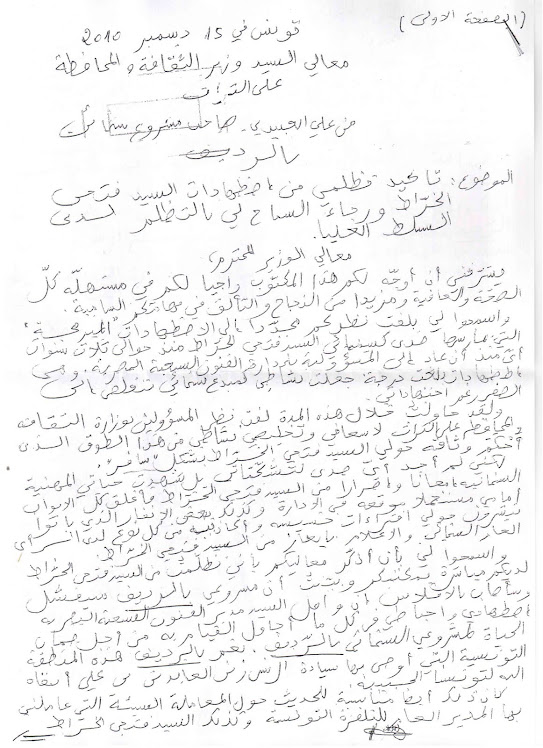 (الصفحة الأولى)
تونس في 15 ديسمبر 2010
معالي السيد وزير الثقافة والمحافظة
على التراث
من علي العبيدي - صاحب مشروع سينمائي
بالرديف
الموضوع: تأكيد تظلمي من اضطهادات السيد فتحي
الخراط ورجاء السماح لي بالتظلم لدى
السلط العليا.
معالي الوزير المحترم،
يشرفني أن أوجه لكم هذا المكتوب راجيا لكم في مستهله كل
الصحة والعافية ومزيدا من النجاح والتألق في مهامكم السامية.
واسمحوا لي بلفت نظركم مجددا إلى الاضطهادات "المبرمجة"
التي يمارسها ضدي كسينمائي السيد فتحي الخراط منذ حوالي ثلاث سنوات
أي منذ أن عاد إلى المسؤولية بإدارة الفنون السمعية البصرية، وهي
اضطهادات بلغت درجة جعلت نشاطي كمبدع سينمائي يتقلص إلى
الصفر رغم اجتهاداتي.
ولقد حاولت خلال هذه المدة لفت نظر المسؤولين بوزارة الثقافة
والمحافظة على التراث لإسعافي وتخليص نشاطي من هذا الطوق الذي
أحكم وثاقه حولي السيد فتحي الخراط بشكل "سافر".
لكني لم أجد أي صدى لتشكياتي بل شهدت حياتي المهنية
السينمائية إمعانا وإصرارا من السيد فتحي الخراط فأغلق كل الأبواب
أمامي مستعملا موقعه في الإدارة وكذلك بعض الأنفار الذي باتوا
ينشرون حولي افتراءات خسيسة وأكاذيب من كل نوع لدى الرأي
العام السينمائي والإعلام بإيعاز من السيد فتحي الخراط.
واسمحوا لي بأن أذكر معاليكم بأني تظلمت من السيد فتحي الخراط
لديكم مباشرة بمكتبكم وبينت أن مشروعي بالرديف سيفشل
وسأصاب بالإفلاس إن واصل السيد مدير الفنون السمعية البصرية
اضطهادي وإحباطي في كل ما أحاول القيام به من أجل ضمان
الحياة لمشروعي السينمائي بالرديف. نعم بالرديف هذه المنطقة
التونسية التي أوصى بها سيادة الرئيس زين العابدين بن علي أبقاه
الله لتونس الحبيبة.
كان ذلك أيضا مناسبة للحديث حول المعاملة السيئة التي عاملني
بها المدير العام للتلفزة التونسية وكذلك السيد فتحي الخراط